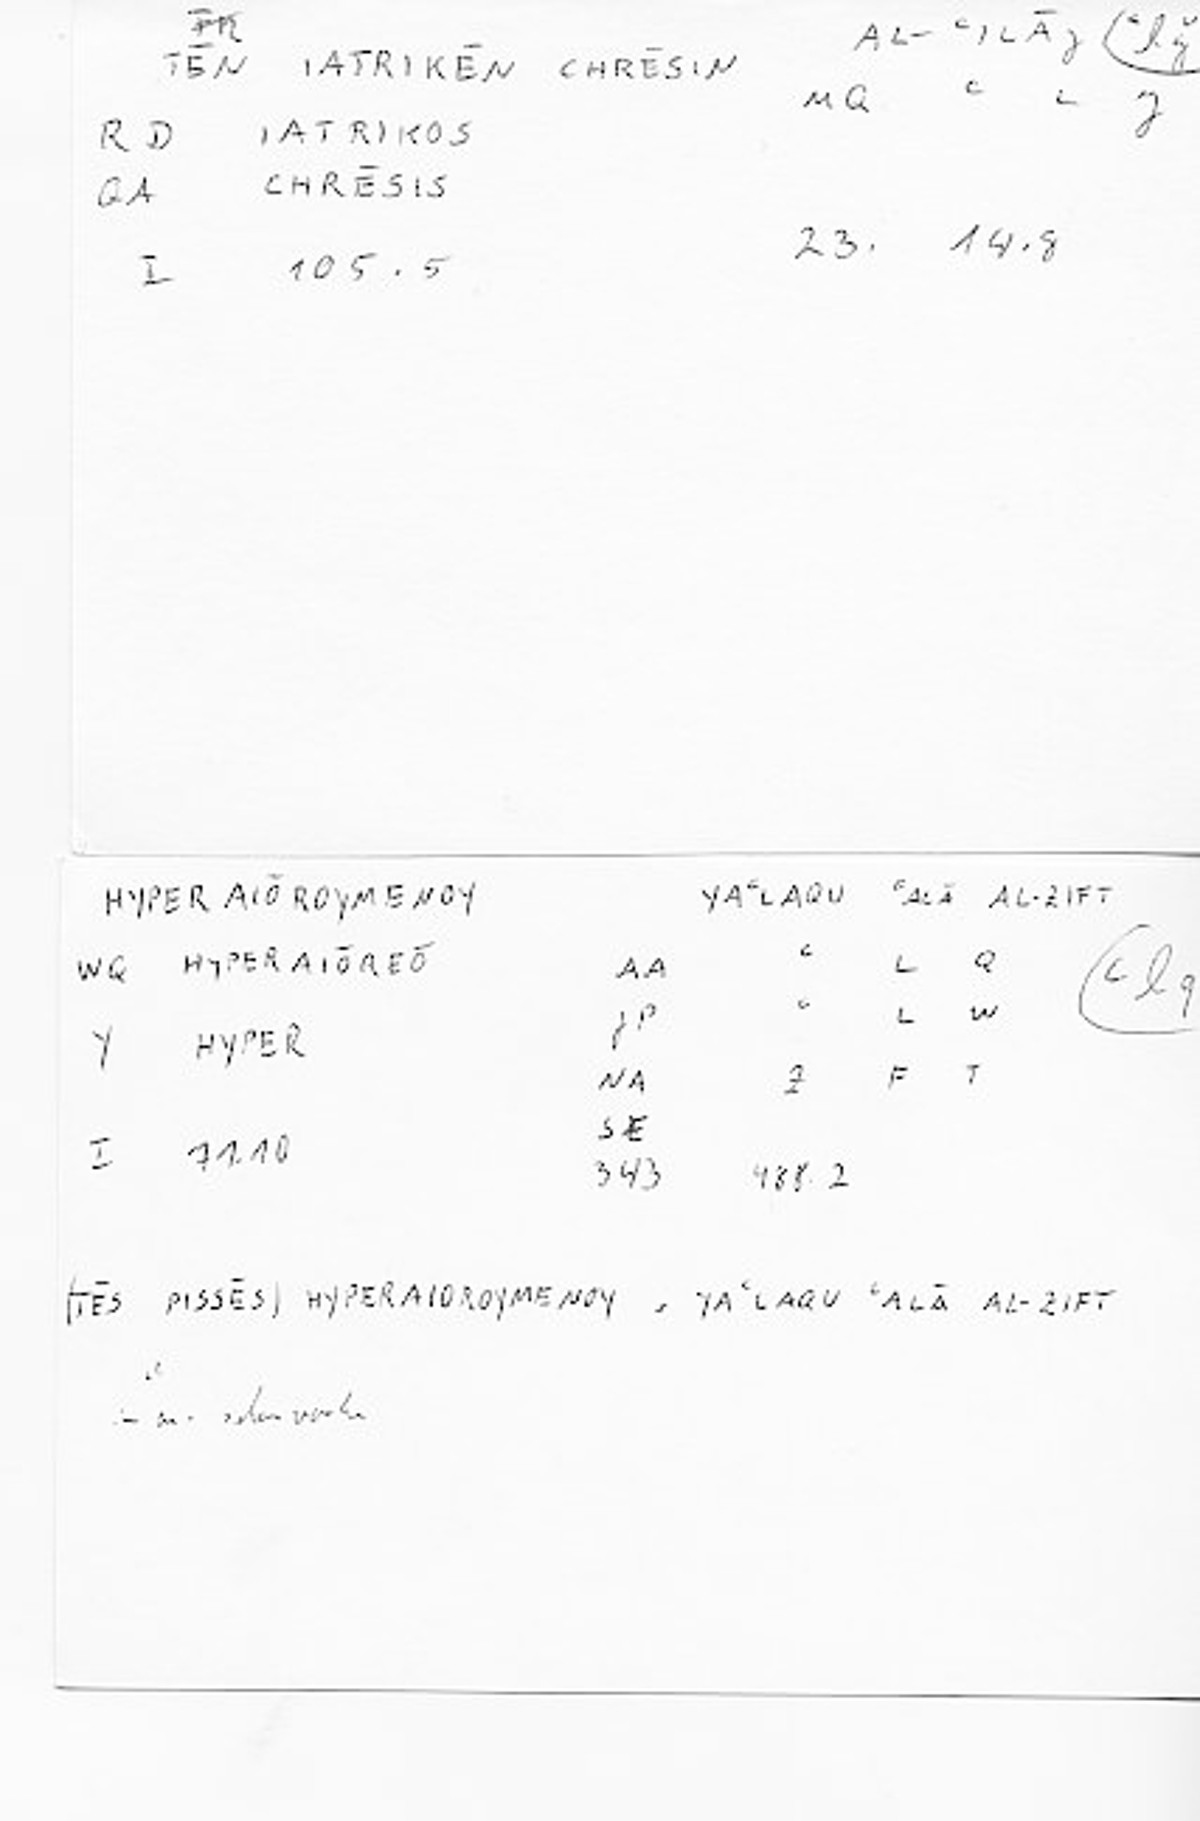 TĒN IATRIKĒN CHRĒSIN AL-ʿILĀJ (ʿlǧ
MQ ʿ L J
RD IATRIKOS
QA CHRĒSIS
I 105.5 23. 14.8
HYPERAIŌROYMENOY YAʿLAQU ʿALĀ AL-ZIFT
WQ HYPERAIŌREŌ AA ʿ L Q (ʿlq
Y HYPER JP ʿ L W
NA Z F T
SE
I 71.10 343 488.2
(TĒS PISSĒS) HYPERAIOROYMENOY , YAʿLAQU ʿALĀ AL-ZIFT